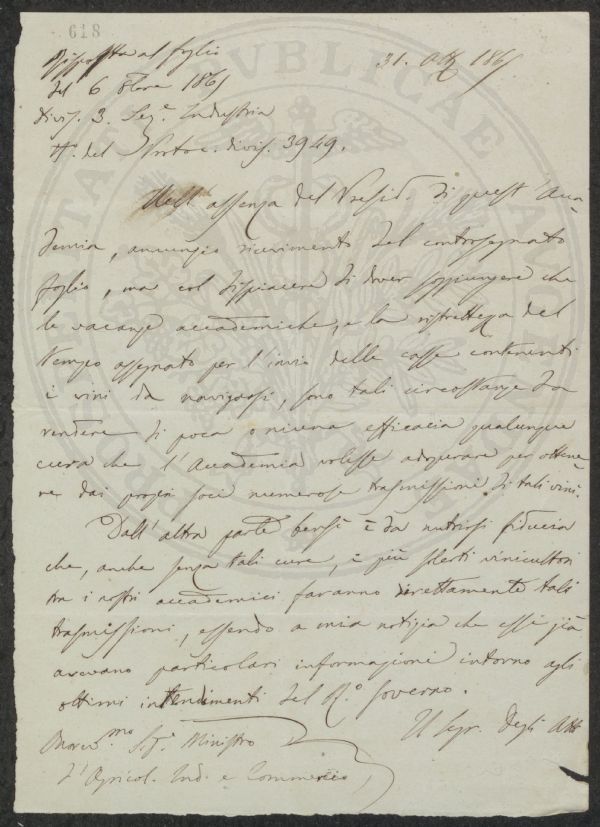 618
Risposta al foglio
del 6 8bre 1861
31. Ott. 1861
Divis. 3. Sez.e Industria
N. del Protoc. divis. 3949.
Nell'assenza del Presid. di quest'Acca-
demia, annunzio ricevimento del controsegnato
foglio, ma col dispiacere di dover soggiungere che
le vacanze accademiche, e la ristrettezza del
tempo assegnato per l'invio delle casse contenenti
i vini da navigarsi, sono tali circostanze da
rendere di poca o niuna efficacia qualunque
cura che l'Accademia volesse adoperare per ottene-
re dai propri soci numerose trasmissioni di tali vini.
Dall'altra parte bensì è da nutrirsi fiducia
che, anche senza tali cure, i più solerti vinicultori
tra i nostri accademici faranno direttamente tali
trasmissioni, essendo a mia notizia che essi già
avevano particolari informazioni intorno agli
ottimi intendimenti del R.o Governo.
Il Segr. degli Atti
Sig. Ministro
d'Agricol. Ind. e Commercio
PUBLICAE